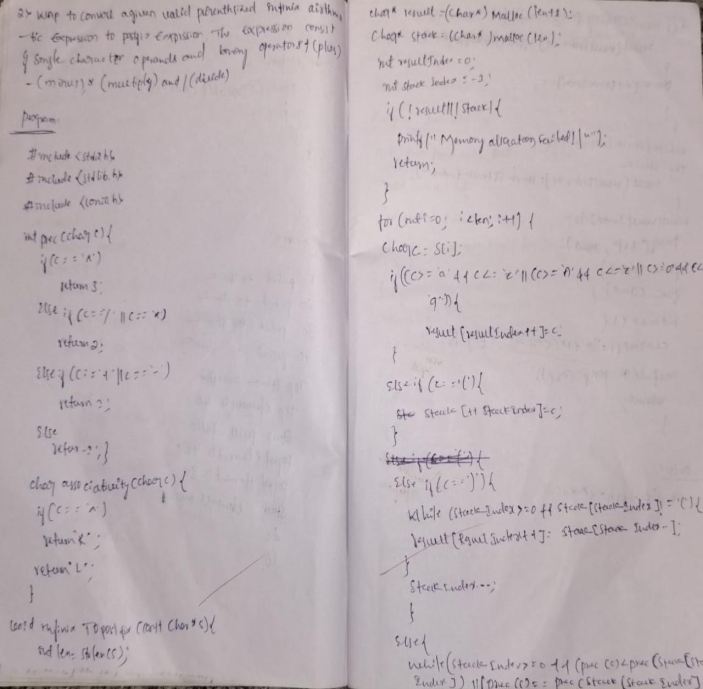 2) WAP to convert a given valid parenthesized infix arithm
-tic expression to postfix expression The expression consist
of single character operands and binary operators + (plus)
- (minus), * (multiply) and / (divide)
Program
#include <stdio.h>
#include <stdlib.h>
#include <conio.h>
int prec(char c){
if(c=='^')
return 3;
Else if (c=='/' || c==*)
return 2;
Else if (c=='+' || c=='-')
return
Else
char associativity(char c) {
if (c=='^')
return 'R';
return 'L';
}
void infix To postfix (const char *s){
int len= strlen(s);
char* result =(char*) Malloc (len+1);
Char* stack = (Char*)malloc (len);
int resultIndex =0;
int stack Index =
if (!result || !stack) {
printf ("Memory allocation failed! \n");
return;
}
for (int i=0; i<len; i++) {
Char c = s[i];
if((c>='a' && c<= 'z' || (c>='A' && c<='z' || c>=
'9')){
result [resultIndex++]=c;
}
Else if (c=='('){
Stack [++ Stack Index]=c;
}
Else if (c==')'){
While (Stack Index>=0 && Stack [Stack Index]!='('){
result [Result Index++]= Stack [Stack Index--];
}
Stack Index--;
}
Else{
while(Stack Index>=0 && (prec (c)<prec (Stack[St
Index]) || prec (c)== prec (Stack [Stack Index]